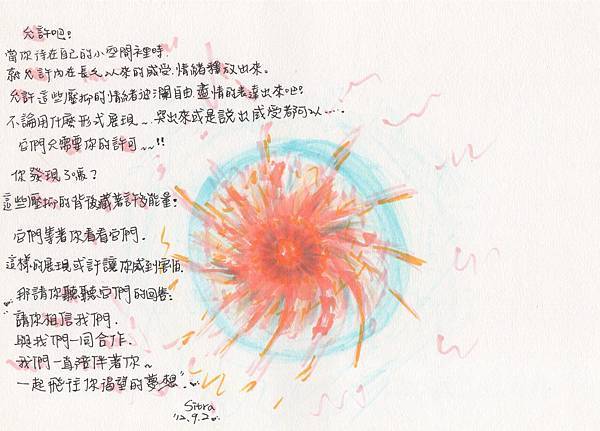 允許吧!
當你待在自己的小空間裡時,
就允許內在長久以來的感受、情緒釋放出來。
允許這些壓抑的情緒被 自由、盡情的表達出來吧!
不論用什麼形式展現~、哭出來或是說出感受都可以.....
它們只需要你的許可~~!!
你發現了嗎?
這些壓抑的背後藏著許多能量。
它們等著你看看它們.
這樣的展現或許讓你感到害怕.
那請你聽聽它們的回答:
"請你相信我們.
與我們一同合作.
我們一直陪伴著你~
一起飛往你渴望的夢想"
Sitra
'12.9.2